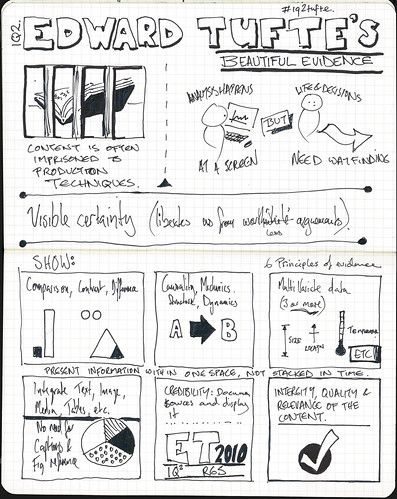 #iq2tufte.
IQ2. EDWARD TUFTE'S
BEAUTIFUL EVIDENCE
CONTENT IS OFTEN
IMPRISONED to
PRODUCTION
TECHNIQUES.
ANALYSIS HAPPENS
AT A SCREEN
BUT
LIFE & DECISIONS
NEED WAYFINDING
Visible certainty (liberates us from arguments).
SHOW:
6 Principles of evidence
Comparison, Contrast, Difference
Causality, Mechanics,
Structure, Dynamics
A
B
Multivariate data
(3 or more)
SIZE
TEMPERATURE
ETC
PRESENT INFORMATION WITHIN ONE SPACE, NOT STACKED IN TIME.
Integrate Text, Image,
Media, Tables, etc.
No need for
Captions &
Fig reference
CREDIBILITY: Document
sources and display
it
ET 2010
IQ2 RGS
INTEGRITY, QUALITY &
RELEVANCE OF THE
CONTENT.